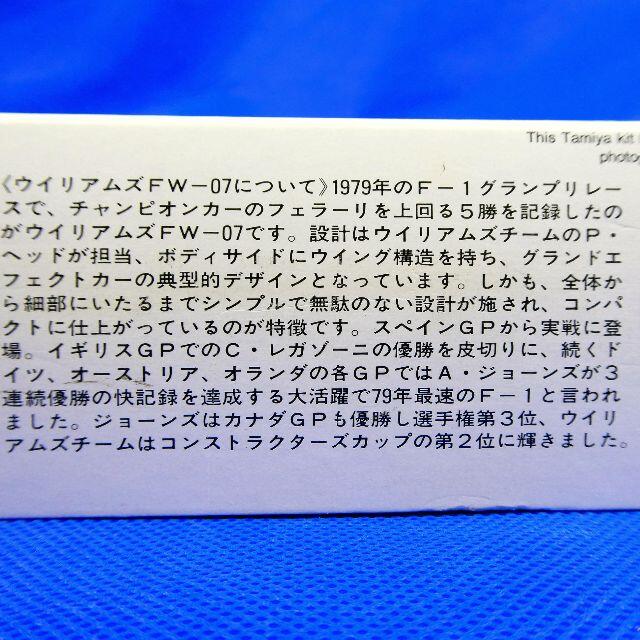 This Tamiya kit
photog
《ウイリアムズFW−07について》1979年のF−1グランプリレー
スで、チャンピオンカーのフェラーリを上回る5勝を記録したの
がウイリアムズFW−07です。設計はウイリアムズチームのP・
ヘッドが担当、ボディサイドにウイング構造を持ち、グランドエ
フェクトカーの典型的デザインとなっています。しかも、全体か
ら細部にいたるまでシンプルで無駄のない設計が施され、コンパ
クトに仕上がっているのが特徴です。スペインGPから実戦に登
場。イギリスGPでのC・レガゾーニの優勝を皮切りに、続くド
イツ、オーストリア、オランダの各GPではA・ジョーンズが3
連続優勝の快記録を達成する大活躍で79年最速のF−1と言われ
ました。ジョーンズはカナダGPも優勝し選手権第3位、ウイリ
アムズチームはコンストラクターズカップの第2位に輝きました。